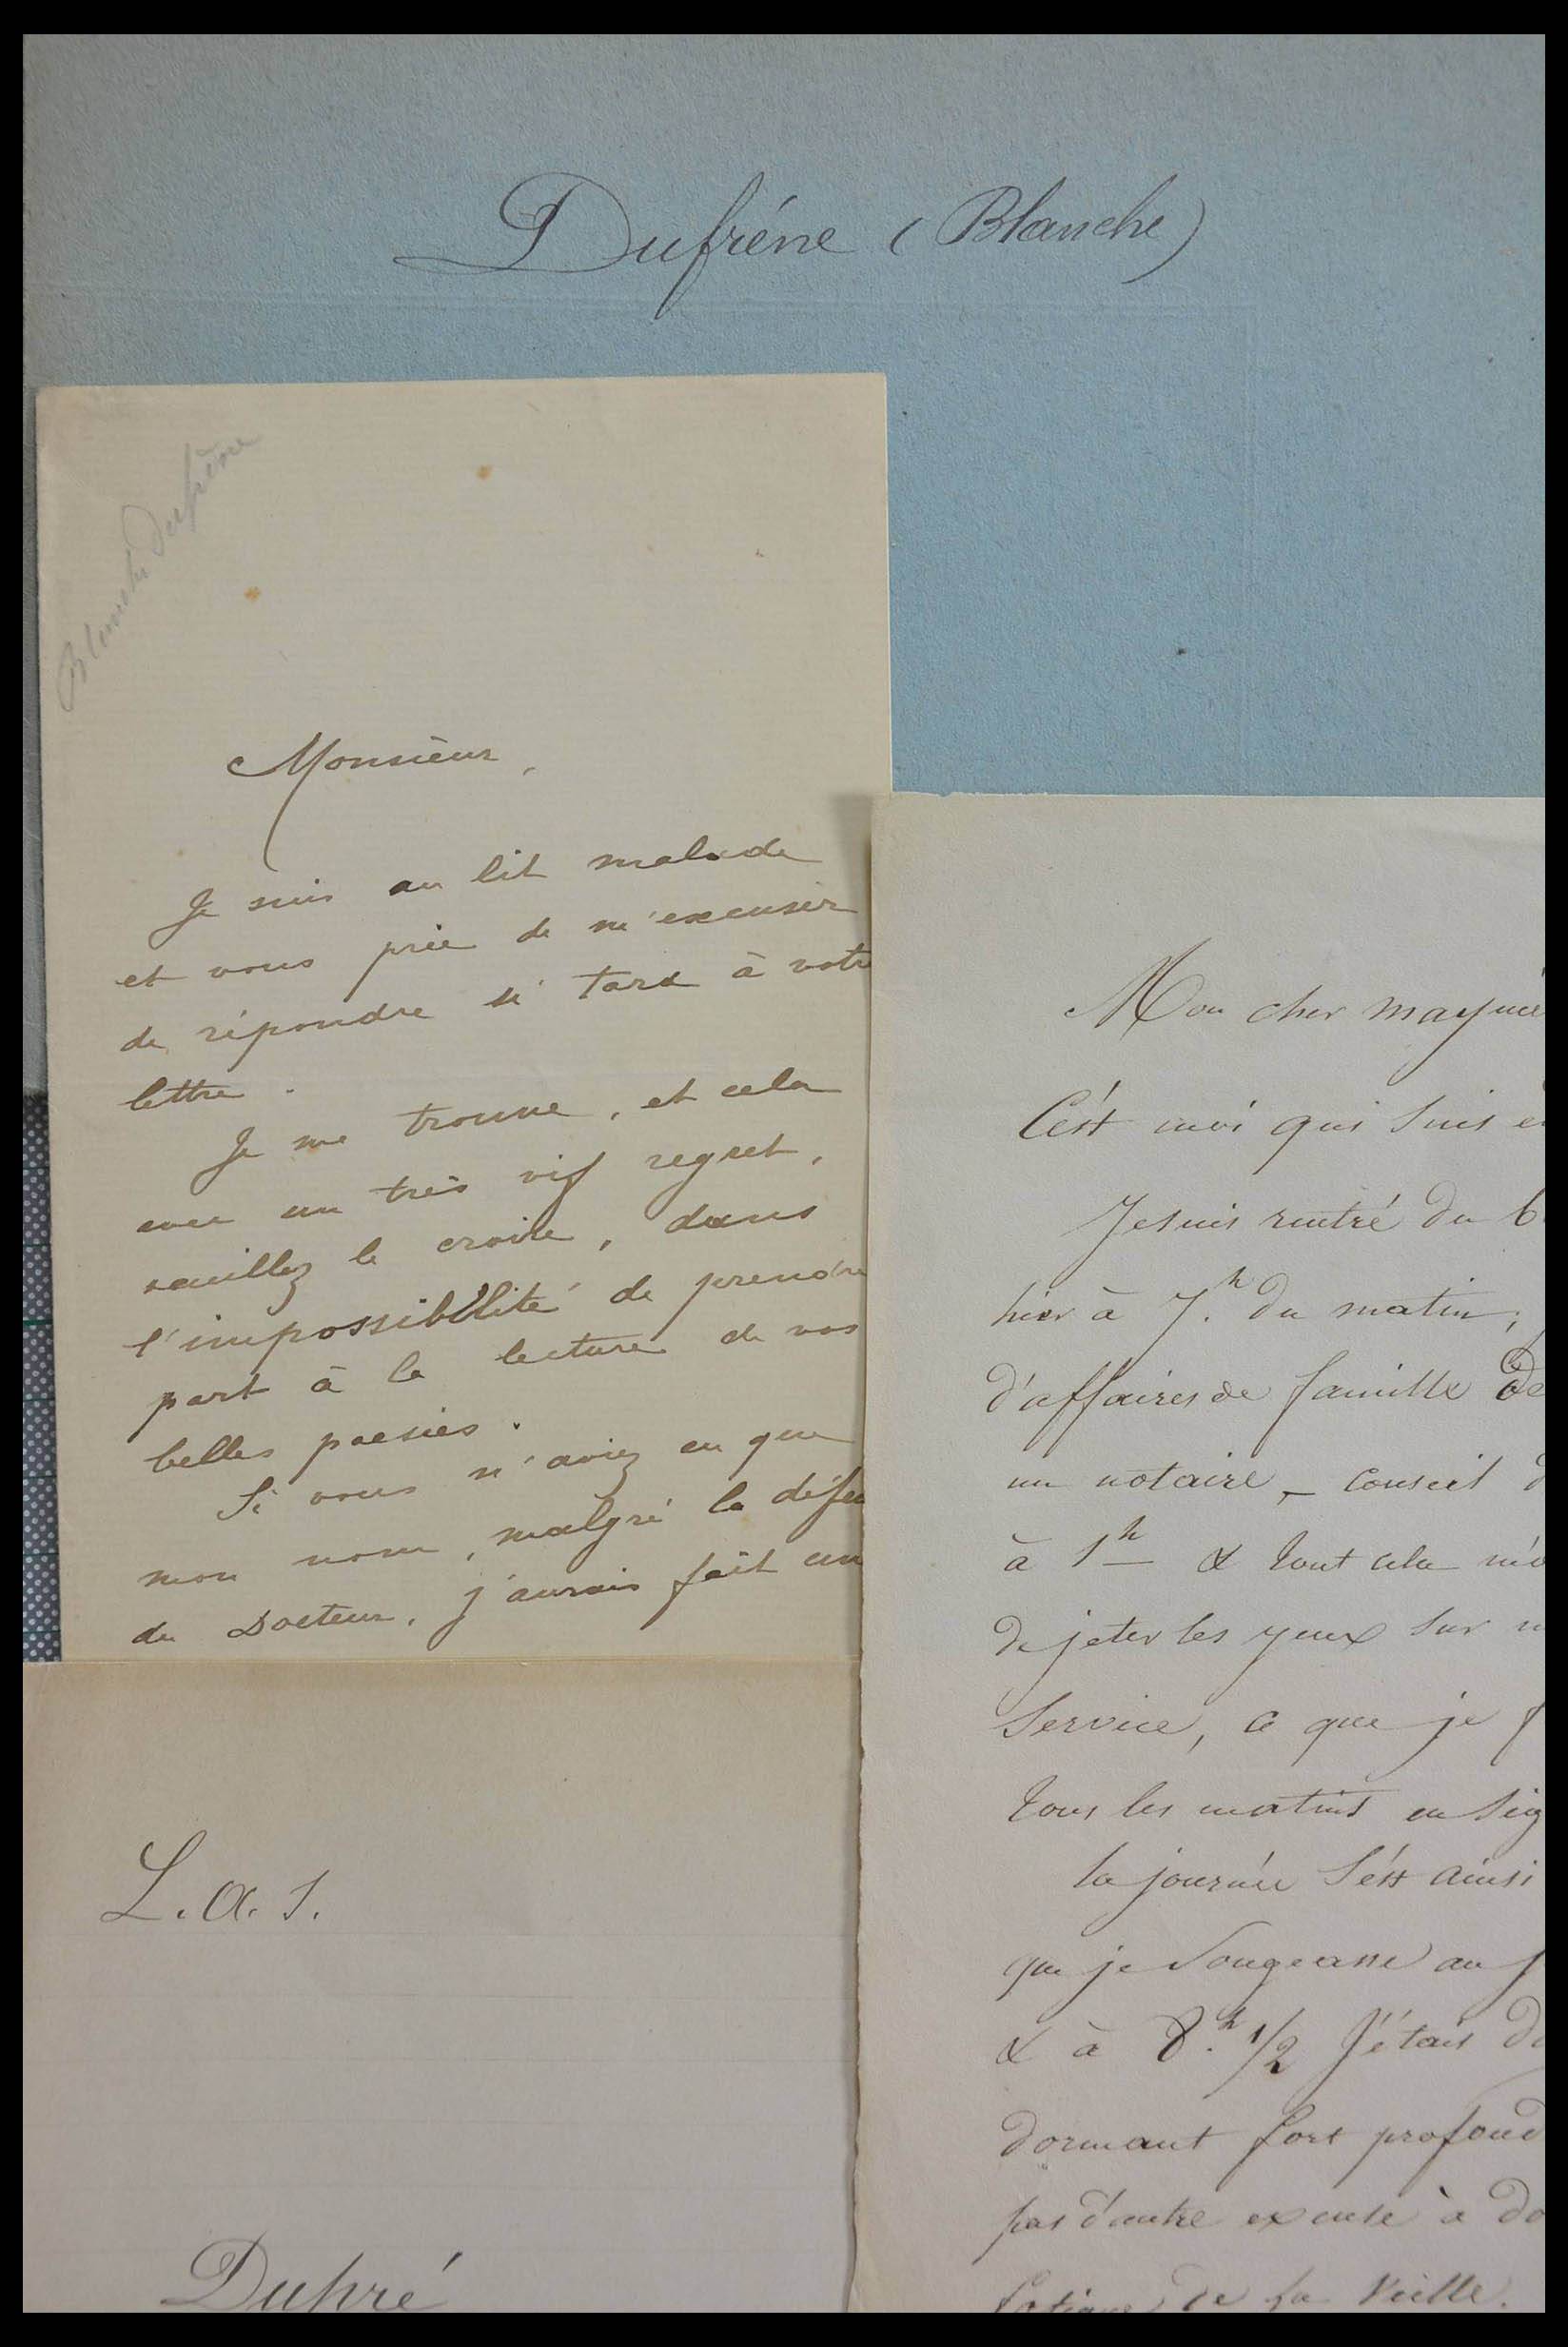 Dufréne (Blanche)
Blanche Dufrène
Monsieur,
Je suis au lit malade
et vous prie de m'excuser
de répondre si tard à votre
lettre.
Je me trouve, et cela
avec un très vif regret,
veuillez le croire, dans
l'impossibilité de prendre
part à la lecture de vos
belles poesies.
Si vous n'aviez eu que
mon nom, malgré la défen
du Docteur, j'aurais fait un
L.a.s.
Dupré
Mon cher
C'est moi qui suis
Je suis rentré du
hier à 7.h du matin,
d'affaires de famille de
un notaire, - conseil d
à 1h & tout cela
de jeter les yeux sur
Service, ce que je f
tous les matins en sig
la journée s'est ainsi
que je songeasse au
& à 8.h 1/2 J'étais d
dormant fort profond
pas d'autre excuse à do
fatigue de la Veille.